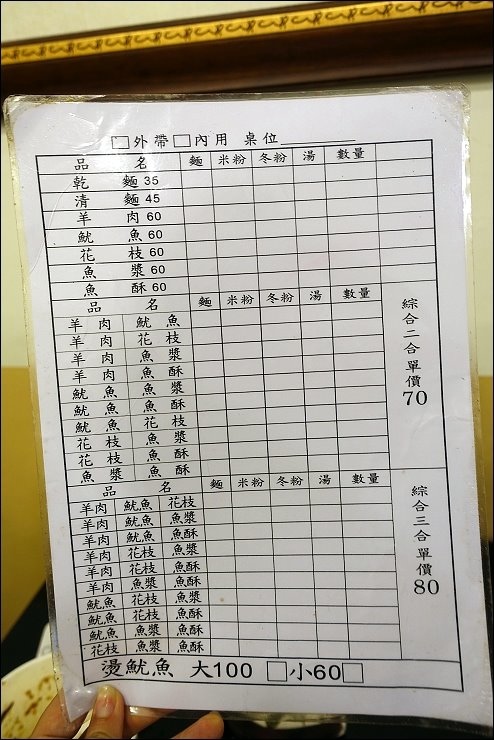 □外帶□內用 桌位
品 名 麵 米粉 冬粉 湯 數量
乾 麵 35
清 麵 45
羊 肉 60
魷 魚 60
花 枝 60
魚 漿 60
魚 酥 60
品 名 麵 米粉 冬粉 湯 數量
羊 肉 魷 魚
羊 肉 花 枝
羊 肉 魚 漿
羊 肉 魚 酥
魷 魚 魚 漿
魷 魚 魚 酥
魷 魚 花 枝
花 枝 魚 漿
花 枝 魚 酥
魚 漿 魚 酥
綜合二合單價70
品 名 麵 米粉 冬粉 湯 數量
羊肉 魷魚 花枝
羊肉 魷魚 魚漿
羊肉 魷魚 魚酥
羊肉 花枝 魚漿
羊肉 花枝 魚酥
羊肉 魚漿 魚酥
魷魚 花枝 魚漿
魷魚 花枝 魚酥
魷魚 魚漿 魚酥
花枝 魚漿 魚酥
綜合三合單價80
燙魷魚 大100 □小60□